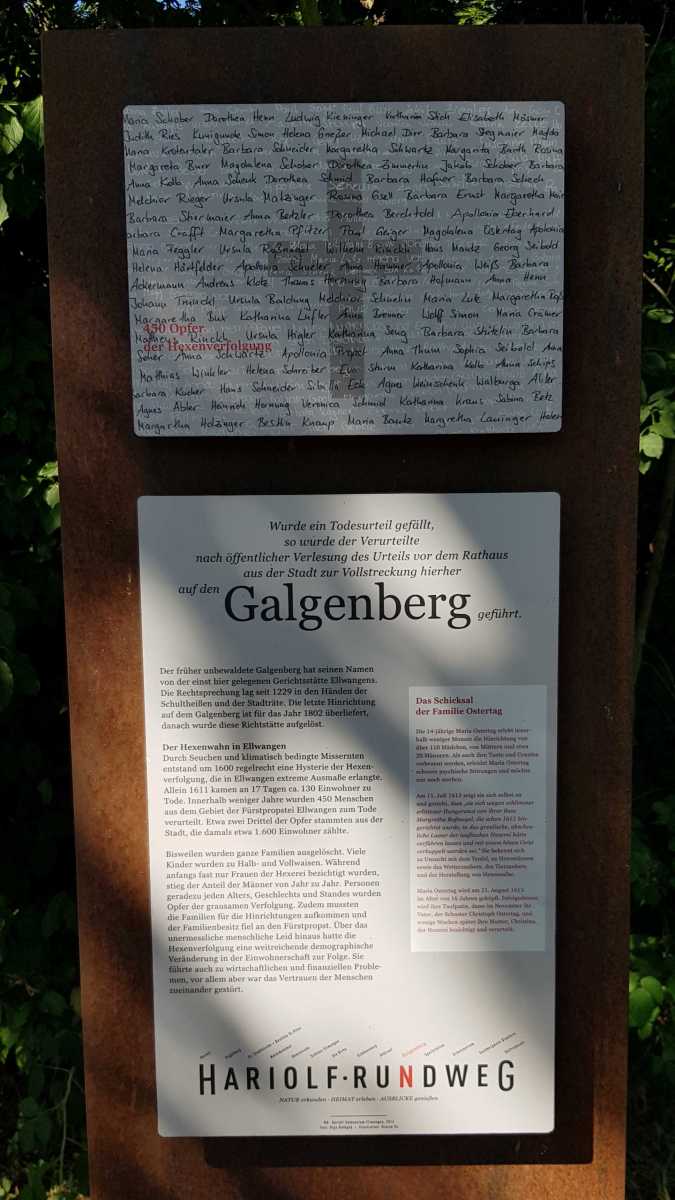 Maria Schober Dorothea Henn Ludwig Kieninger Katharina Stich Elisabeth Mösner
Judith Ries Kunigunde Simon Helena Gneßer Michael Dirr Barbara Stegmaier Magda
Barbara Schneider Margaretha Schwartz Margarita Barth Rosina
Margareta Burr Magdalena Schober Dorothea Zimmerlin Jakob Schober Barbara
Anna Kolb Anna Schenk Dorothea Schmid Barbara Hafner Barbara Schech
Melchior Rieger Ursula Matzinger Rosina Gsell Barbara Ernst Margaretha
Barbara Anna Betzler Dorothea Berchtold Apollonia Eberhard
arbara Crafft Margaretha Pfitzer Paul Geiger Magdalena Ostertag Apolonia
Maria Feggler Ursula Wilhelm Kinckh Hans Mandz Georg Seibold
Helena Härtfelder Apollonia Schueler Anna Hammer Apollonia Weiß Barbara
Ackermann Andreas Klotz Thomas Hornung Barbara Hofmann Anna Henn
Johann Trünckl Ursula Baldung Melchior Schnelin Maria Lutz Margaretha
Margaretha Bux Katharina Lüfler Anna Bremer Wolff Simon Maria Crämer
450 Opfer
der Hexenverfolgung
Kinckh Ursula Higler Katharina Seng Barbara Barbara
Anna Schwartz Apollonia Anna Thum Sophia Seibold Anna
Matthias Winkler Helena Schreiber Eva Katharina Kolb Anna Schips
arbara Kucher Hans Schneider Sibilla Eck Agnes Weinschenk Walburga Abler
Agnes Abler Heinrich Hornung Veronica Schmid Katharina Kraus Sabina Betz
Margartha Holzinger Bestlin Knaup Maria Bautz Margretha Lauinger
Wurde ein Todesurteil gefällt,
so wurde der Verurteilte
nach öffentlicher Verlesung des Urteils vor dem Rathaus
aus der Stadt zur Vollstreckung hierher
auf den Galgenberg geführt.
Der früher unbewaldete Galgenberg hat seinen Namen
von der einst hier gelegenen Gerichtsstätte Ellwangens.
Die Rechtsprechung lag seit 1229 in den Händen der
Schultheißen und der Stadträte. Die letzte Hinrichtung
auf dem Galgenberg ist für das Jahr 1802 überliefert,
danach wurde diese Richtstätte aufgelöst.
Der Hexenwahn in Ellwangen
Durch Seuchen und klimatisch bedingte Missernten
entstand um 1600 regelrecht eine Hysterie der Hexen-
verfolgung, die in Ellwangen extreme Ausmaße erlangte.
Allein 1611 kamen an 17 Tagen ca. 130 Einwohner zu
Tode. Innerhalb weniger Jahre wurden 450 Menschen
aus dem Gebiet der Fürstpropstei Ellwangen zum Tode
verurteilt. Etwa zwei Drittel der Opfer stammten aus der
Stadt, die damals etwa 1.600 Einwohner zählte.
Bisweilen wurden ganze Familien ausgelöscht. Viele
Kinder wurden zu Halb- und Vollwaisen. Während
anfangs fast nur Frauen der Hexerei bezichtigt wurden,
stieg der Anteil der Männer von Jahr zu Jahr. Personen
geradezu jeden Alters, Geschlechts und Standes wurden
Opfer der grausamen Verfolgung. Zudem mussten
die Familien für die Hinrichtungen aufkommen und
der Familienbesitz fiel an den Fürstpropst. Über das
unermessliche menschliche Leid hinaus hatte die
Hexenverfolgung eine weitreichende demographische
Veränderung in der Einwohnerschaft zur Folge. Sie
führte auch zu wirtschaftlichen und finanziellen Proble-
men, vor allem aber war das Vertrauen der Menschen
zueinander gestört.
Das Schicksal
der Familie Ostertag
Die 14-jährige Maria Ostertag erlebt inner-
halb weniger Monate die Hinrichtung von
über 110 Mädchen, von Müttern und etwa
20 Männern. Als auch ihre Tante und Cousine
verbrannt werden, erleidet Maria Ostertag
schwere psychische Störungen und möchte
nur noch sterben.
Am 15. Juli 1613 zeigt sie sich selbst an
und gesteht, dass „sie sich wegen schlimmer
erlittener Hungersnot von ihrer Base
die schon 1611 hin-
gerichtet wurde, in das greuliche, abscheu-
liche Laster der teuflischen Hexerei hätte
verführen lassen und mit einem bösen Geist
verkuppelt worden sei.“ Sie bekennt sich
zu Unzucht mit dem Teufel, zu Hexentänzen
sowie des Wetterzaubers, des Tierzaubers
und der Herstellung von Hexensalbe.
Maria Ostertag wird am 23. August 1613
im Alter von 16 Jahren geköpft. Infolgedessen
wird ihre Taufpatin, dann im November ihr
Vater, der Schuster Christoph Ostertag, und
wenige Wochen später ihre Mutter, Christina,
der Hexerei bezichtigt und verurteilt.
Galgenberg
HARIOLF·RUNDWEG
NATUR erkunden · HEIMAT erleben · AUSBLICKE genießen